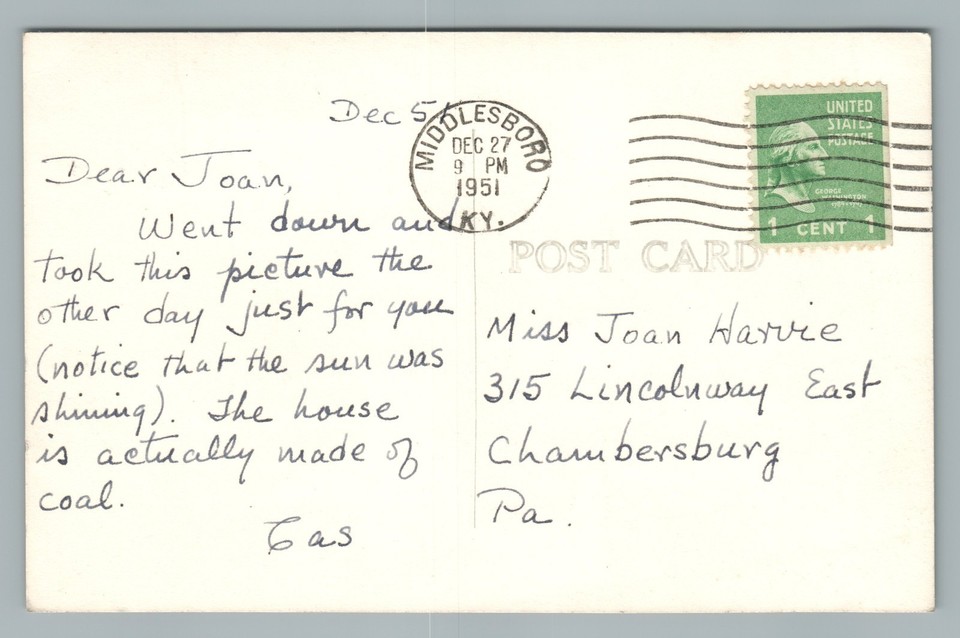 Dec 51
MIDDLESBORO
DEC 27
9 PM
1951
KY.
UNITED
STATES
POSTAGE
GEORGE
WASHINGTON
1 CENT 1
POST CARD
Dear Joan,
Went down and
took this picture the
other day just for you
(notice that the sun was
shining). The house
is actually made of
coal.
Cas
Miss Joan Harvie
315 Lincolnway East
Chambersburg
Pa.